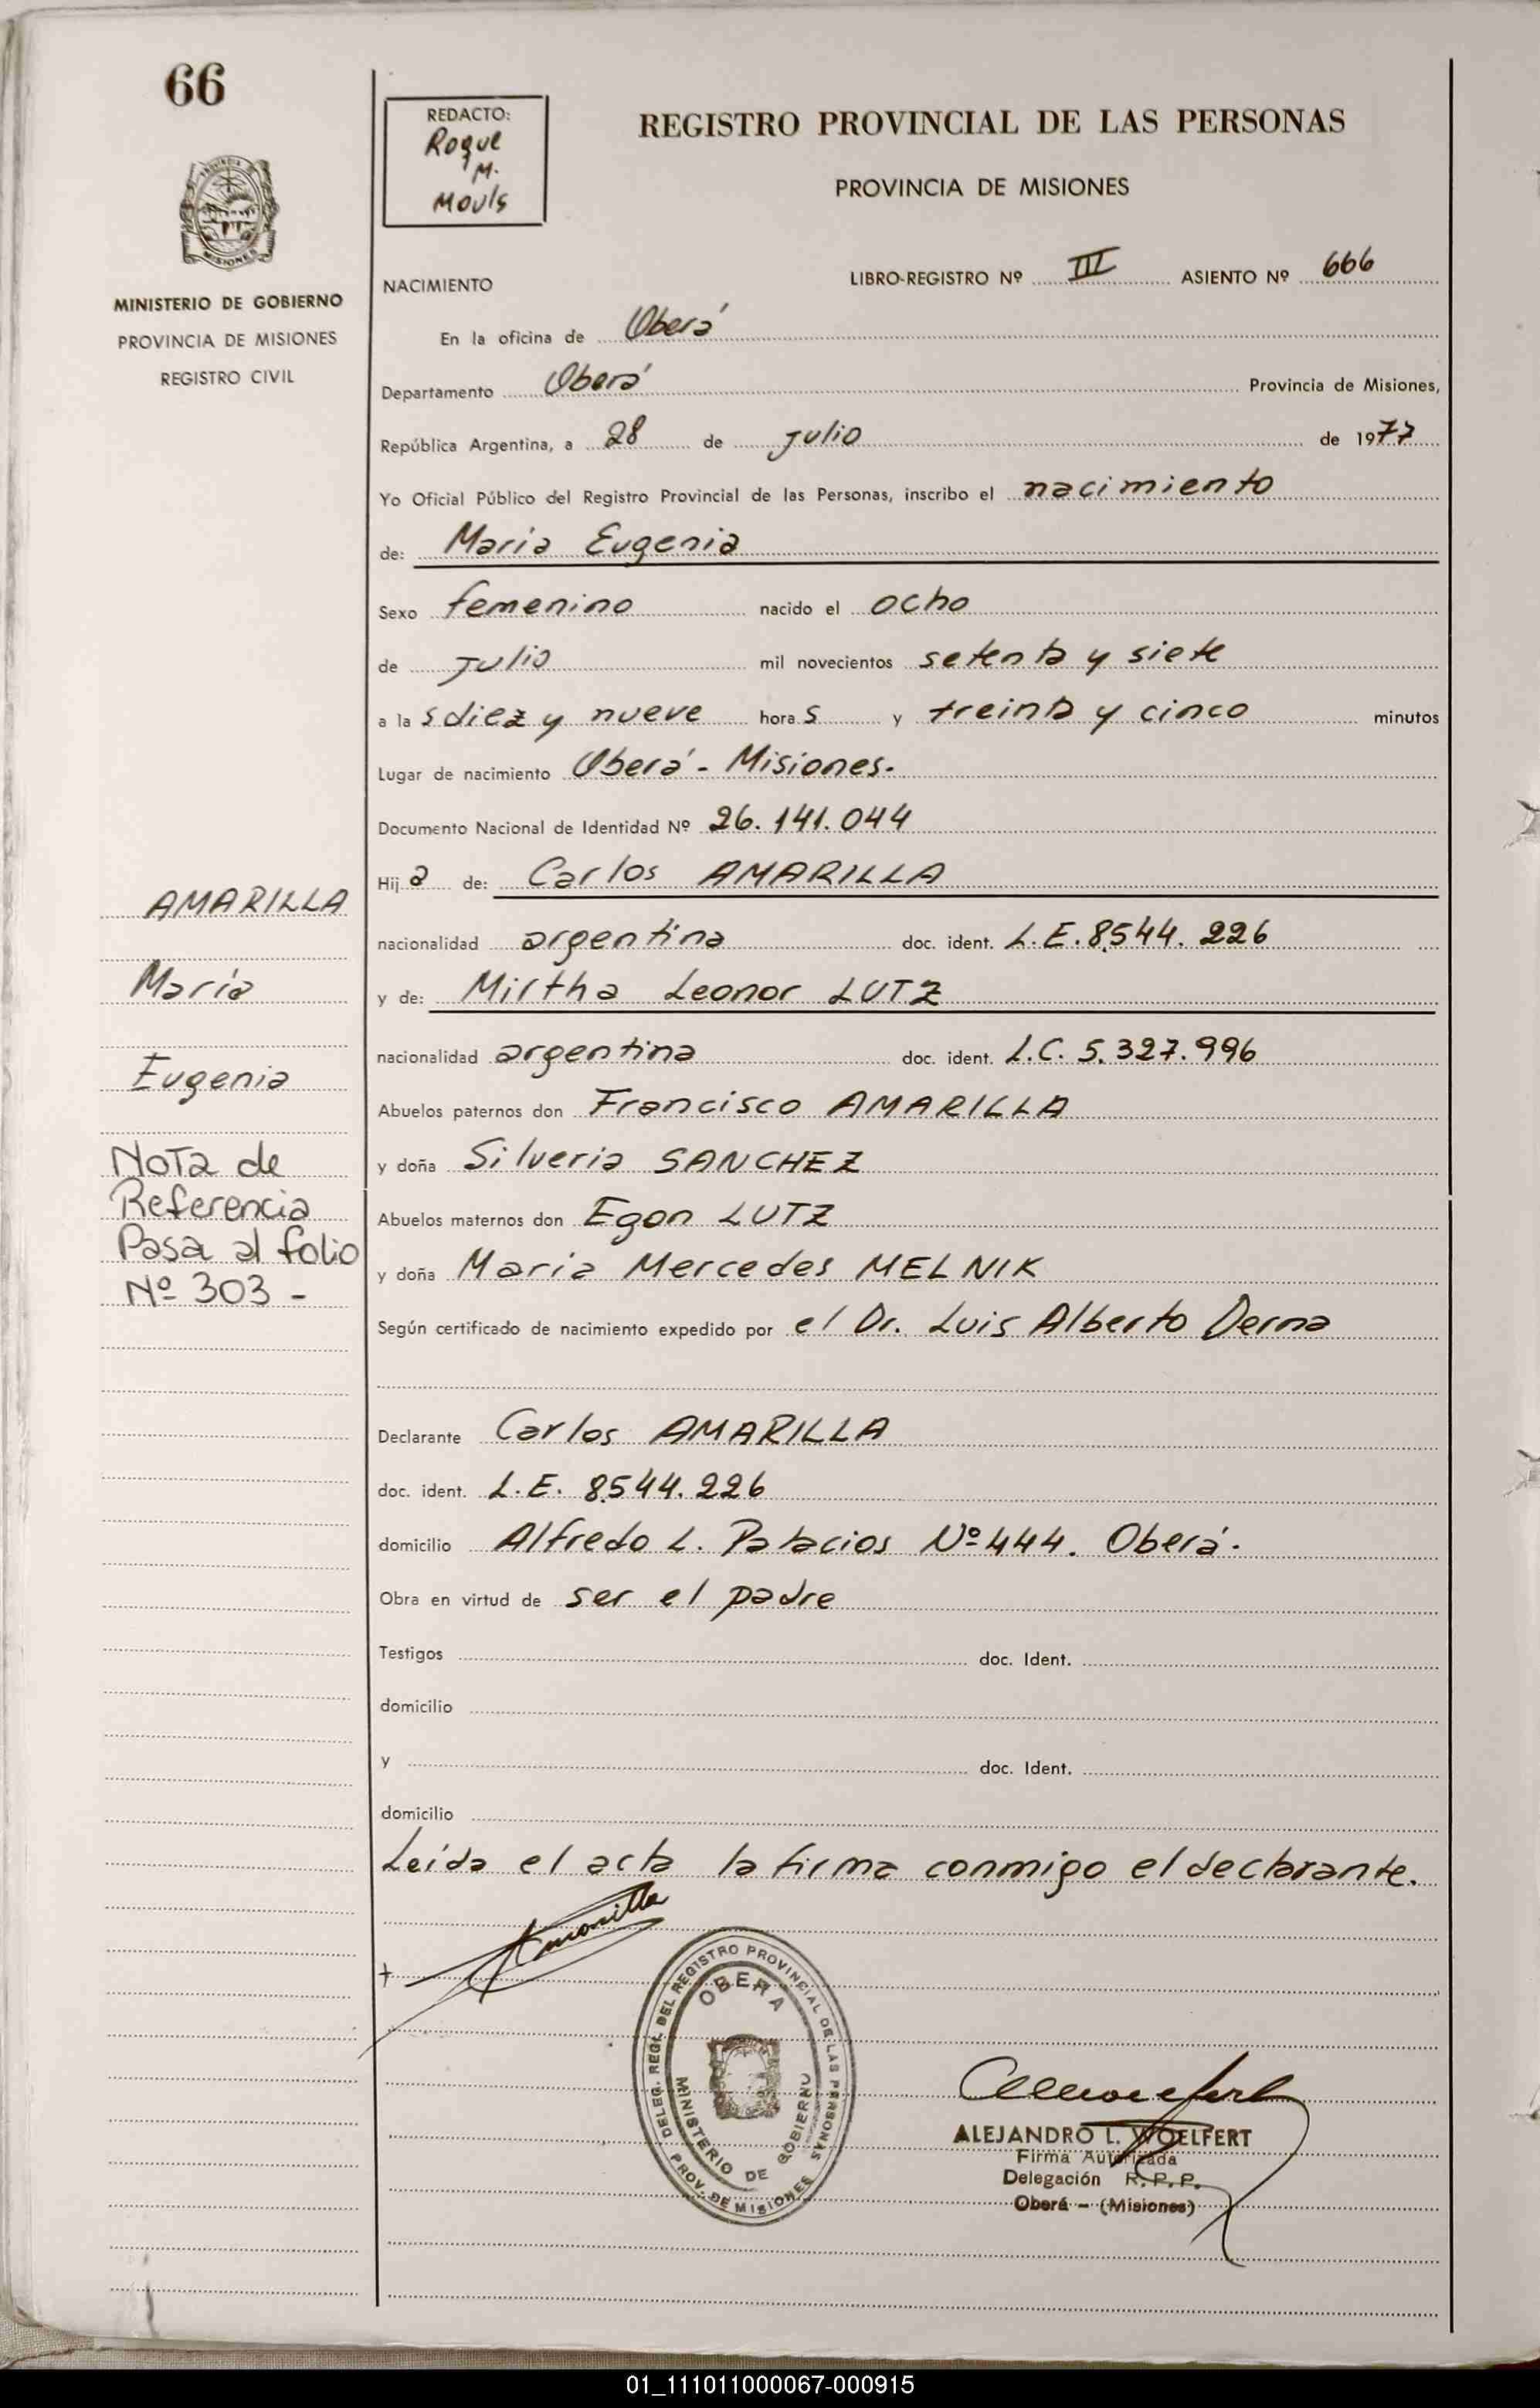 66
MINISTERIO DE GOBIERNO
PROVINCIA DE MISIONES
REGISTRO CIVIL
REDACTO:
Roque
M.
Mouls
REGISTRO PROVINCIAL DE LAS PERSONAS
PROVINCIA DE MISIONES
NACIMIENTO
LIBRO-REGISTRO Nº III ASIENTO Nº 666
En la oficina de Oberá
Departamento Oberá Provincia de Misiones,
República Argentina, a 28 de Julio de 1977
Yo Oficial Público del Registro Provincial de las Personas, inscribo el nacimiento
de: Maria Eugenia
Sexo femenino nacido el ocho
de Julio mil novecientos setenta y siete
a la s diez y nueve hora s y treinta y cinco minutos
Lugar de nacimiento Oberá - Misiones.
Documento Nacional de Identidad Nº 26.141.044
Hij a de: Carlos AMARILLA
nacionalidad argentina doc. ident. L.E. 8.544.226
y de: Mirtha Leonor LUTZ
nacionalidad argentina doc. ident. L.C. 5.327.996
Abuelos paternos don Francisco AMARILLA
y doña Silveria SANCHEZ
Abuelos maternos don Egon LUTZ
y doña Maria Mercedes MELNIK
Según certificado de nacimiento expedido por el Dr. Luis Alberto Derna
Declarante Carlos AMARILLA
doc. ident. L.E. 8.544.226
domicilio Alfredo L. Palacios Nº 444. Oberá.
Obra en virtud de ser el padre
Testigos doc. Ident.
domicilio
y doc. Ident.
domicilio
Leída el acta la firma conmigo el declarante.
AMARILLA
María
Eugenia
NOTA de
Referencia
Pasa al folio
Nº 303 -
Amarilla
DELEG. REGI. DEL REGISTRO PROVINCIAL DE LAS PERSONAS
OBERA
MINISTERIO DE GOBIERNO
PROV. DE MISIONES
ALEJANDRO L. WOELFERT
Firma Autorizada
Delegación R.P.P.
Oberá - (Misiones)
01_111011000067-000915